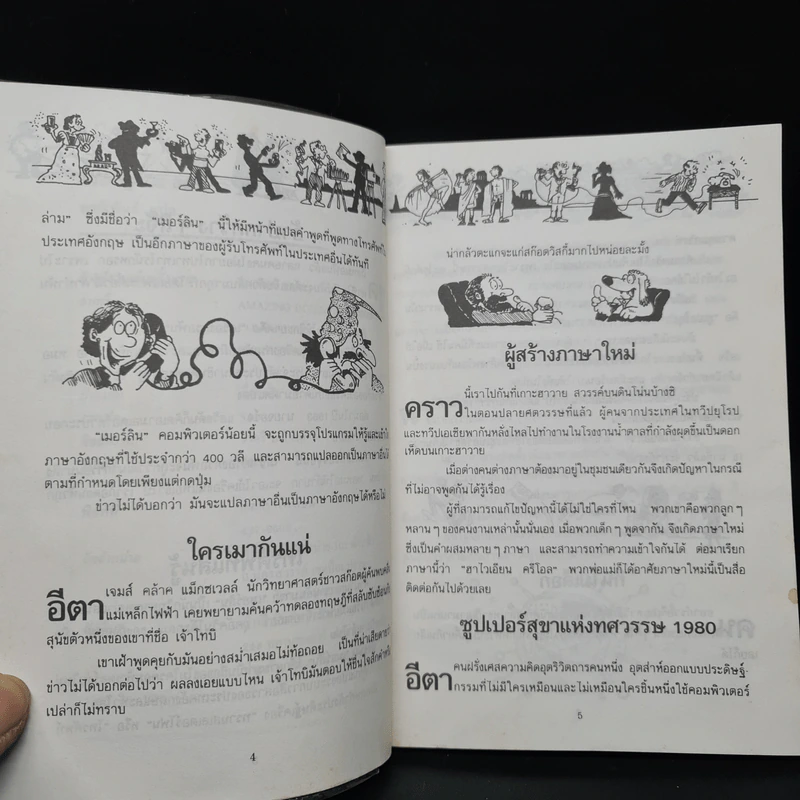 ล่าม" ซึ่งมีชื่อว่า "เมอร์ลิน" นี้ให้มีหน้าที่แปลคำพูดที่พูดทางโทรศัพท์ใน
ประเทศอังกฤษ เป็นอีกภาษาของผู้รับโทรศัพท์ในประเทศอื่นได้ทันที
"เมอร์ลิน" คอมพิวเตอร์น้อยนี้ จะถูกบรรจุโปรแกรมให้รู้และเข้าใจ
ภาษาอังกฤษที่ใช้ประจำกว่า 400 วลี และสามารถแปลออกเป็นภาษาอื่นได้
ตามที่กำหนดโดยเพียงแต่กดปุ่ม
ข่าวไม่ได้บอกว่า มันจะแปลภาษาอื่นเป็นภาษาอังกฤษได้หรือไม่
ใครเมากันแน่
อีตา เจมส์ คล้าค แม็กซเวลล์ นักวิทยาศาสตร์ชาวสก๊อตผู้ค้นพบคลื่น
แม่เหล็กไฟฟ้า เคยพยายามค้นคว้าทดลองทฤษฎีที่สลับซับซ้อนกับ
สุนัขตัวหนึ่งของเขาที่ชื่อ เจ้าโทบิ
เขาเฝ้าพูดคุยกับมันอย่างสม่ำเสมอไม่ท้อถอย เป็นที่น่าเสียดาย
ข่าวไม่ได้บอกต่อไปว่า ผลลงเอยแบบไหน เจ้าโทบิมันตอบให้ชื่นใจสักคำหรือ
เปล่าก็ไม่ทราบ
4
น่ากลัวตะแกจะแก่สก๊อตวิสกี้มากไปหน่อยละมั้ง
ผู้สร้างภาษาใหม่
คราว นี้เราไปกันที่เกาะฮาวาย สวรรค์บนดินโน่นบ้างซิ
ในตอนปลายศตวรรษที่แล้ว ผู้คนจากประเทศในทวีปยุโรป
และทวีปเอเชียพากันหลั่งไหลไปทำงานในโรงงานน้ำตาลที่กำลังผุดขึ้นเป็นดอก
เห็ดบนเกาะฮาวาย
เมื่อต่างคนต่างภาษาต้องมาอยู่ในชุมชนเดียวกันจึงเกิดปัญหาในกรณี
ที่ไม่อาจพูดกันได้รู้เรื่อง
ผู้ที่สามารถแก้ไขปัญหานี้ได้ไม่ใช่ใครที่ไหน พวกเขาคือพวกลูกๆ
หลานๆของคนงานเหล่านั้นนั่นเอง เมื่อพวกเด็กๆพูดจากัน จึงเกิดภาษาใหม่
ซึ่งเป็นคำผสมหลายๆภาษา และสามารถทำความเข้าใจกันได้ ต่อมาเรียก
ภาษานี้ว่า "ไฮไวเอียน ครีโอล" พวกพ่อแม่ก็ได้อาศัยภาษาใหม่นี้เป็นสื่อ
ติดต่อกันไปด้วยเลย
ซูปเปอร์สุขาแห่งทศวรรษ 1980
อีตา คนฝรั่งเศสความคิดอุตริวิตถารคนหนึ่ง อุตส่าห์ออกแบบประดิษฐ์-
กรรมที่ไม่มีใครเหมือนและไม่เหมือนใครชิ้นหนึ่งใช้คอมพิวเตอร์
5